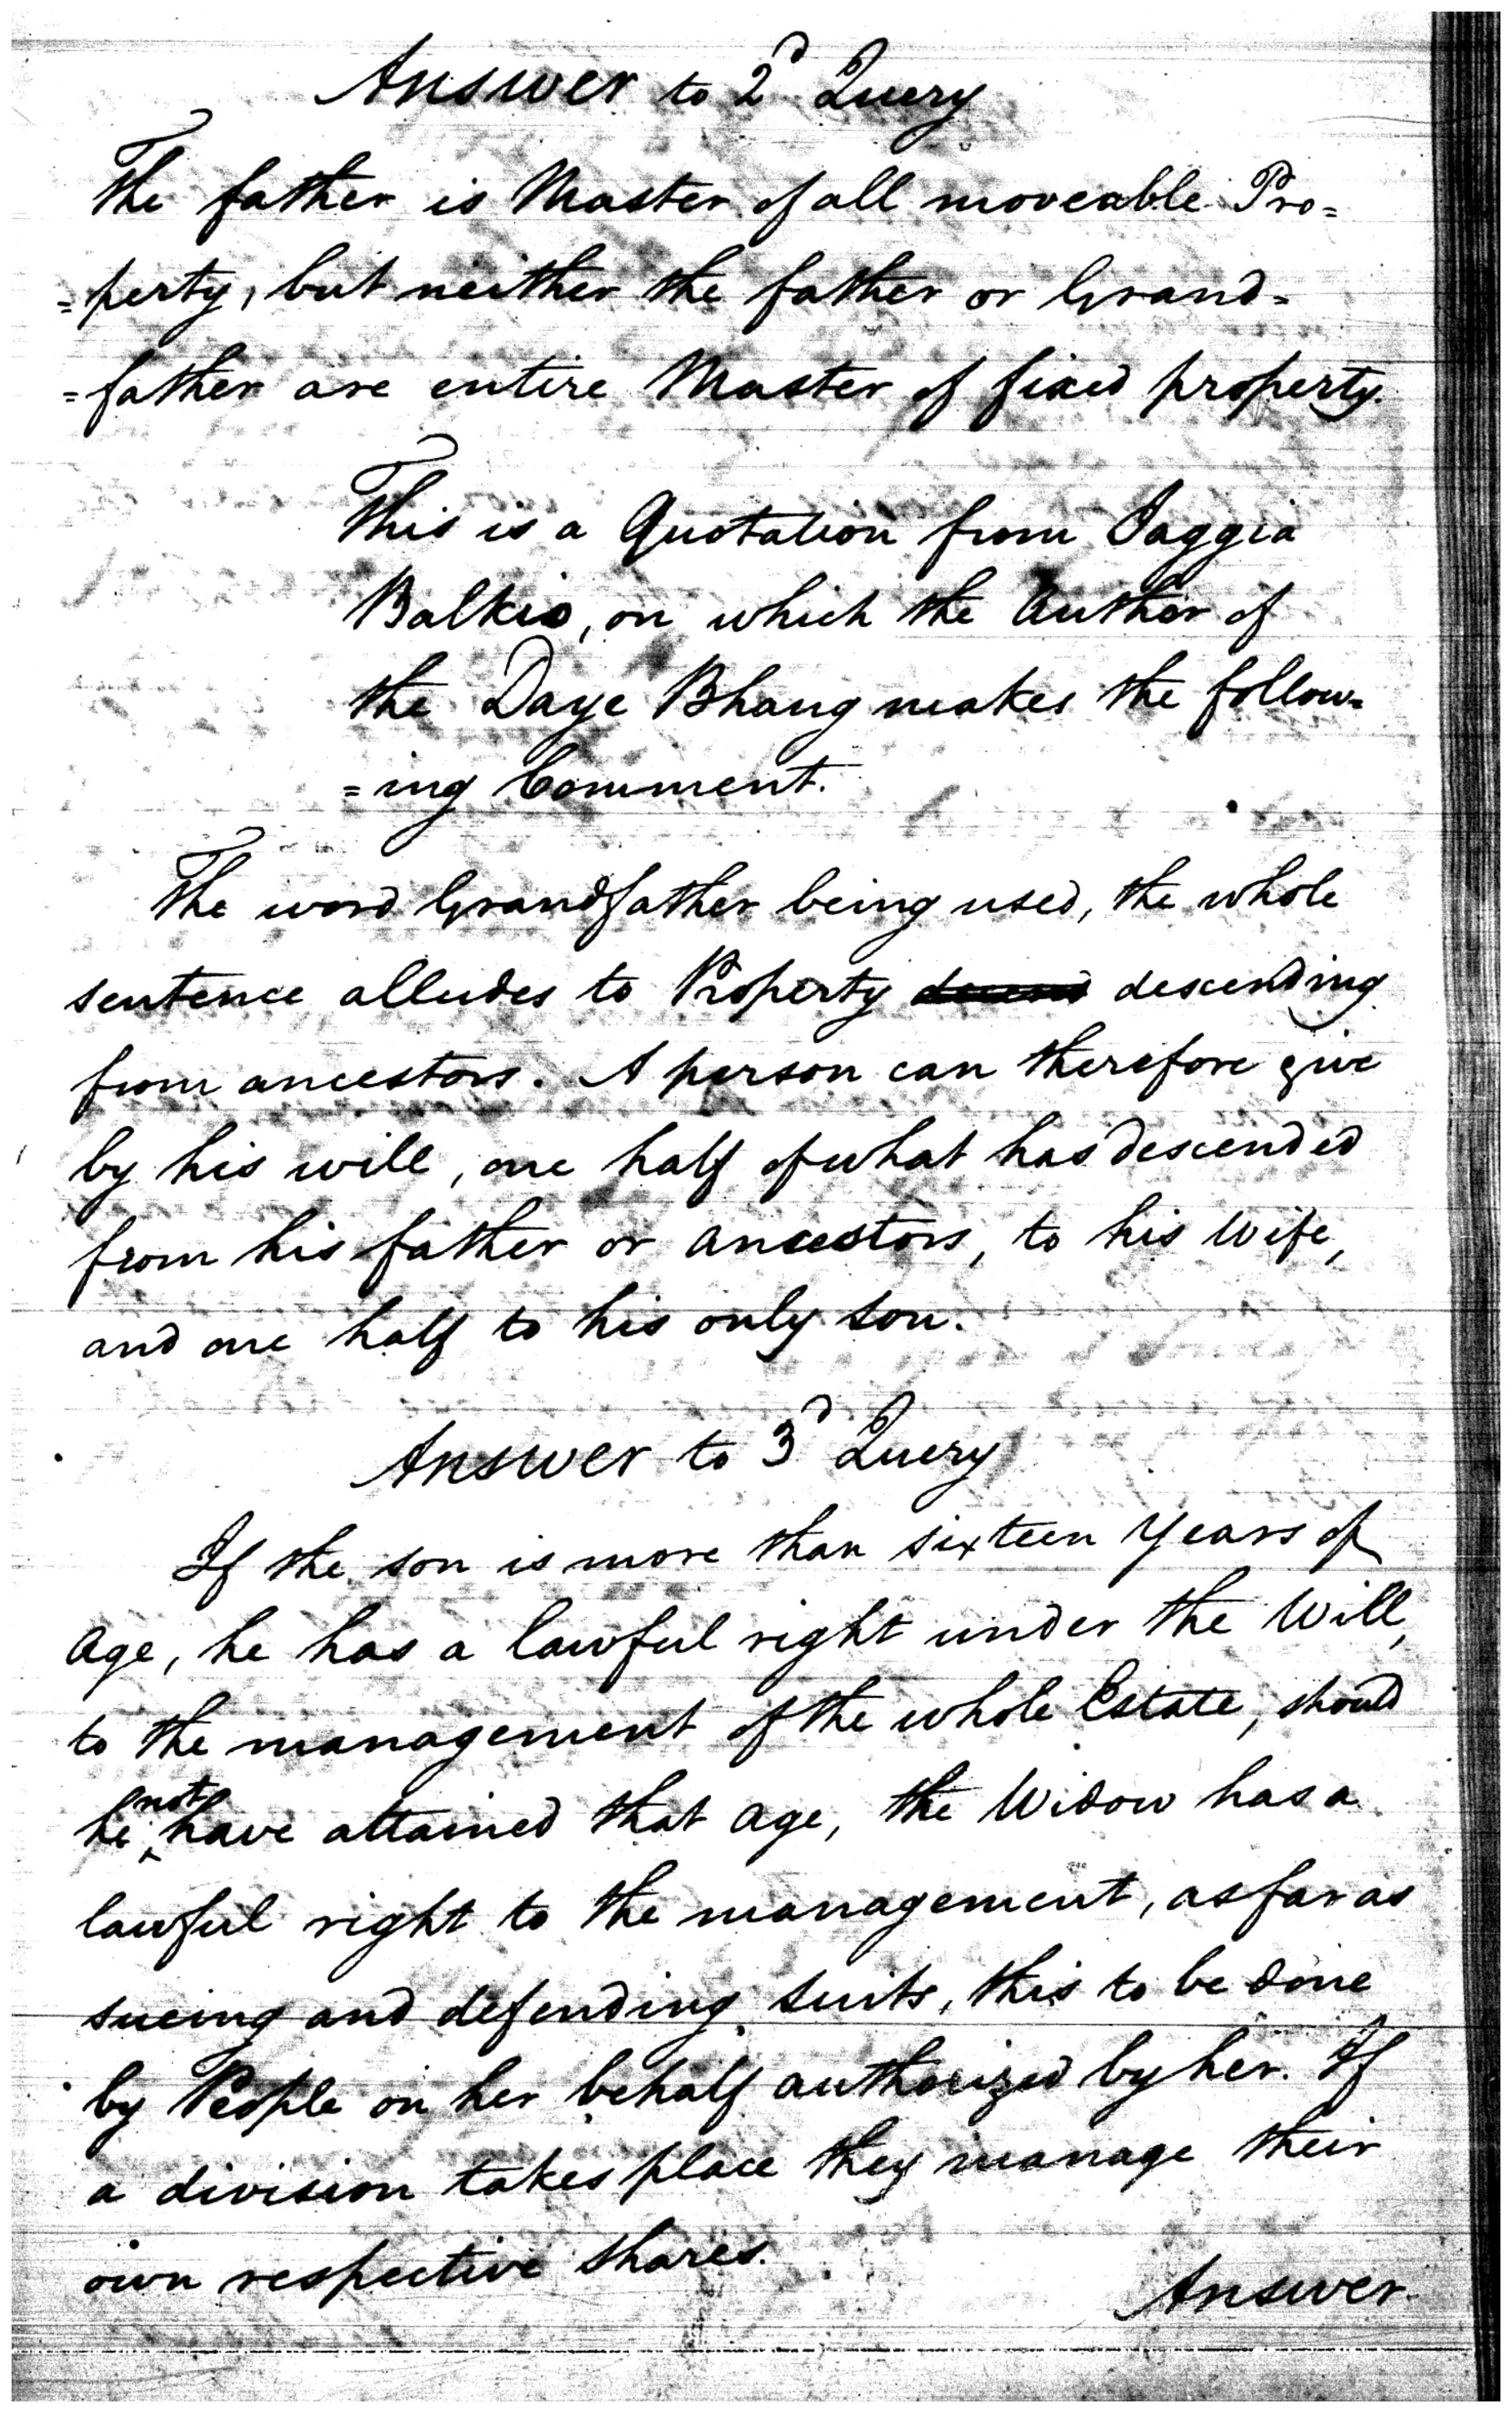 Answer to 2d Query
The father is Master of all moveable Pro=
=perty, but neither the father or Grand=
=father are entire Master of fixed property.
This is a Quotation from Jaggia
Balkio, on which the Author of
the Daye Bhaug makes the follow=
=ing Comment.
The word Grandfather being used, the whole
sentence alludes to Property descending
from ancestors. A person can therefore give
by his will, one half of what has descended
from his father or ancestors, to his Wife,
and one half to his only son.
Answer to 3d Query
If the son is more than sixteen Years of
Age, he has a lawful right under the Will,
to the management of the whole Estate, should
he not have attained that age, the Widow has a
lawful right to the management, as far as
sueing and defending suits, this to be done
by People on her behalf authorized by her. If
a division takes place they manage their
own respective shares.
Answer